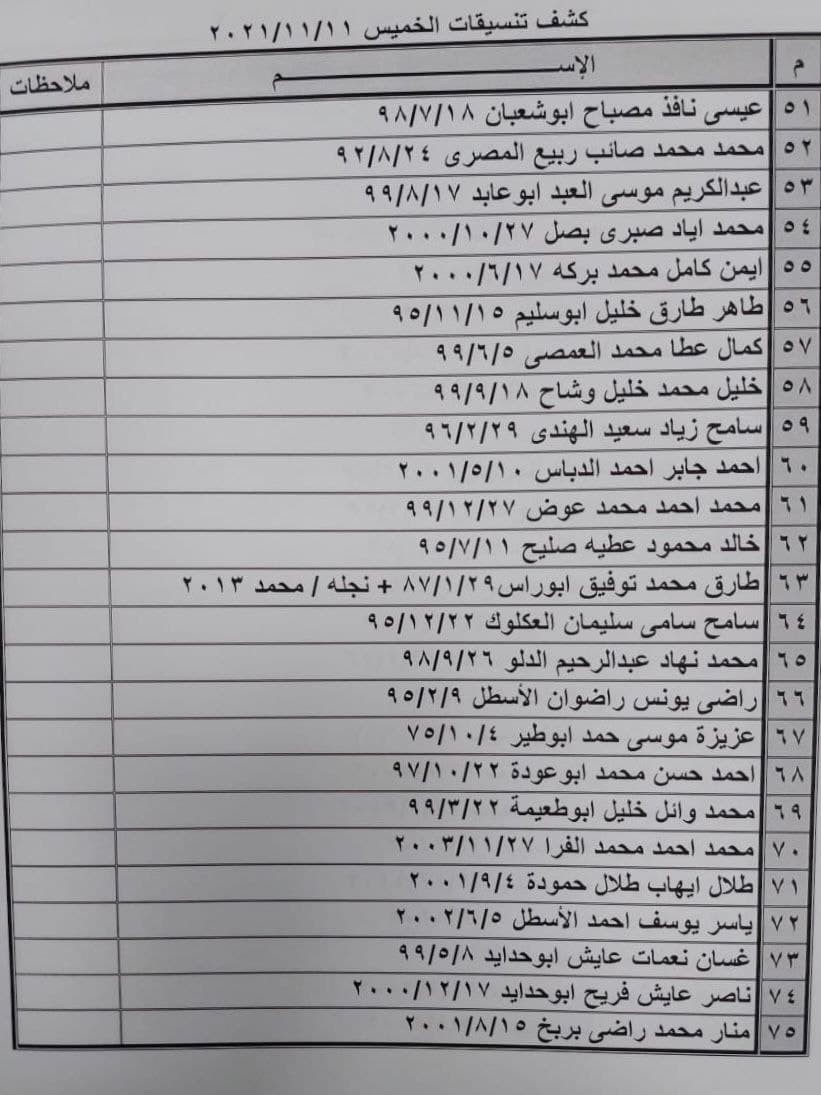 كشف تنسيقات الخميس ٢٠٢١/١١/١١
م الإســـــــــم ملاحظات
٥١ عيسى نافذ مصباح ابوشعبان ٩٨/٧/١٨
٥٢ محمد محمد صائب ربيع المصرى ٩٢/٨/٢٤
٥٣ عبدالكريم موسى العبد ابوعابد ٩٩/٨/١٧
٥٤ محمد اياد صبرى بصل ٢٠٠٠/١٠/٢٧
٥٥ ايمن كامل محمد بركه ٢٠٠٠/٦/١٧
٥٦ طاهر طارق خليل ابوسليم ٩٥/١١/١٥
٥٧ كمال عطا محمد العمصى ٩٩/٦/٥
٥٨ خليل محمد خليل وشاح ٩٩/٩/١٨
٥٩ سامح زياد سعيد الهندى ٩٦/٢/٢٩
٦٠ احمد جابر احمد الدباس ٢٠٠١/٥/١٠
٦١ محمد احمد محمد عوض ٩٩/١٢/٢٧
٦٢ خالد محمود عطيه صليح ٩٥/٧/١١
٦٣ طارق محمد توفيق ابوراس٨٧/١/٢٩ + نجله / محمد ٢٠١٣
٦٤ سامح سامى سليمان العكلوك ٩٥/١٢/٢٢
٦٥ محمد نهاد عبدالرحيم الدلو ٩٨/٩/٢٦
٦٦ راضى يونس راضوان الأسطل ٩٥/٢/٩
٦٧ عزيزة موسى حمد ابوطير ٧٥/١٠/٤
٦٨ احمد حسن محمد ابوعودة ٩٧/١٠/٢٢
٦٩ محمد وائل خليل ابوطعيمة ٩٩/٣/٢٢
٧٠ محمد احمد محمد الفرا ٢٠٠٣/١١/٢٧
٧١ طلال ايهاب طلال حمودة ٢٠٠١/٩/٤
٧٢ ياسر يوسف احمد الأسطل ٢٠٠٢/٦/٥
٧٣ غسان نعمات عايش ابوحدايد ٩٩/٥/٨
٧٤ ناصر عايش فريح ابوحدايد ٢٠٠٠/١٢/١٧
٧٥ منار محمد راضى بربخ ٢٠٠١/٨/١٥